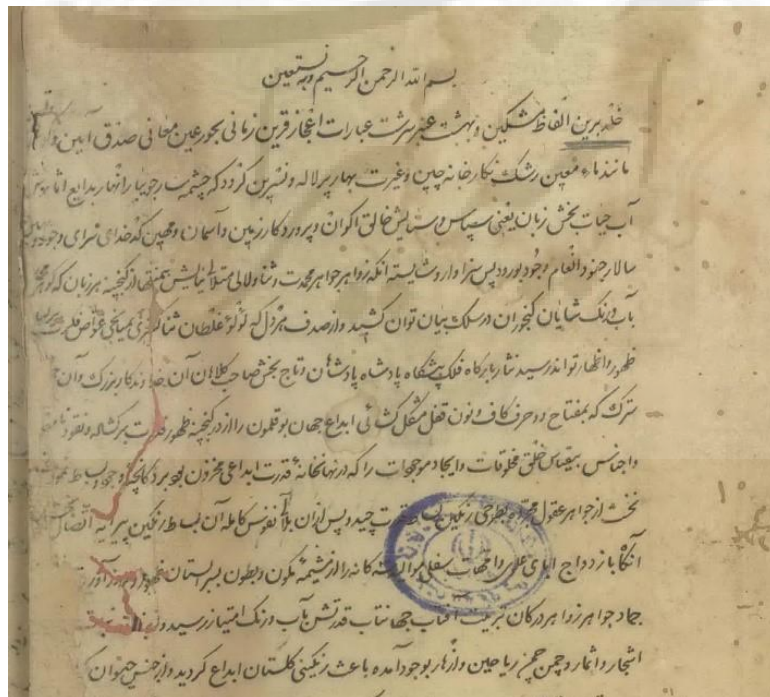 بسم الله الرحمن الرحیم وبه نستعین
خلد برین الفاظ مشکین و بهشت عنبر سرشت عبارات اعجاز قرین زمانی بحور عین معانی صدق آیین
مانند ماء معین رشک نکارخانه چین وغیرت بهار پر لاله ونسرین کردد که چشمه سار جویبار انهار بدایع
آب حیات بخش زبان یعنی سپاس وستایش خالق اکوان وپروردکار زمین وآسمان خدای سرای وجود
سالار جنود انعام وجود بود پس سزاوار وشایسته آنکه زواهر جواهر محمدت وثنا ولالی متلالی نیایش از کنجینه هر زبان که
بآب ورنک شایان کنجوران در سلک بیان توان کشید واز صدف هر دل که لؤلؤ غلطان ثنا
ظهور واظهار تواند رسید نثار بارکاه فلک پیشکاه پادشاه پادشاهان وتاج بخش صاحب کلاهان آن خداوندکار بزرک وآن
سترک که بمفتاح دو حرف کاف ونون قفل مشکل کشائی ابداع جهان بوقلمون را از در کنجینه ظهور قدرت برکشاد ونقود
واجناس خلق مخلوقات وایجاد موجودات را که در نهانخانه قدرت ابداعی مخزون بود
نخست از جواهر عقول رنکین بساط قدرت چید وپس از ان نفوس کامله آن بساط رنکین پیرایه
آنکاه بازدواج آبای علوی وامهات سفلی کانه را از مشیمه مکون وبطون
جماد جواهر زواهر در کان تربیت آفتاب جهانتاب قدرتش بآب ورنک امتیاز رسید
اشجار واثمار وچمن چمن ریاحین وازهار بوجود آمده باعث رنکینی کلستان ابداع کردید واز جنس حیوان